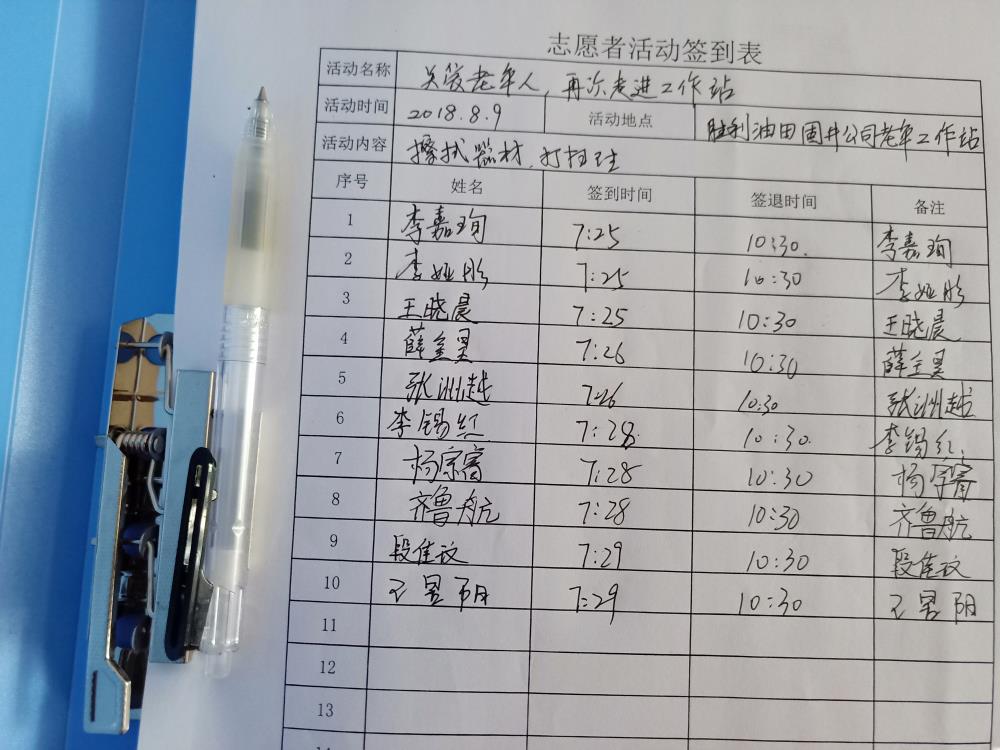 志愿者活动签到表
活动名称 关爱老年人，再次走进工作站
活动时间 2018.8.9 活动地点 胜利油田固井公司老年工作站
活动内容 擦拭器材，打扫卫生
序号 姓名 签到时间 签退时间 备注
1 李嘉珣 7:25 10:30. 李嘉珣
2 李娅彤 7:25 10:30 李娅彤
3 王晓晨 7:25 10:30 王晓晨
4 薛金昊 7:26 10:30 薛金昊
5 张洲越 7:26 10:30 张洲越
6 李锡红 7:28 10:30. 李锡红
7 杨宗睿 7:28 10:30 杨宗睿
8 齐鲁航 7:28 10:30 齐鲁航
9 段佳汶 7:29 10:30 段佳汶
10 7:29 10:30
11
12
13